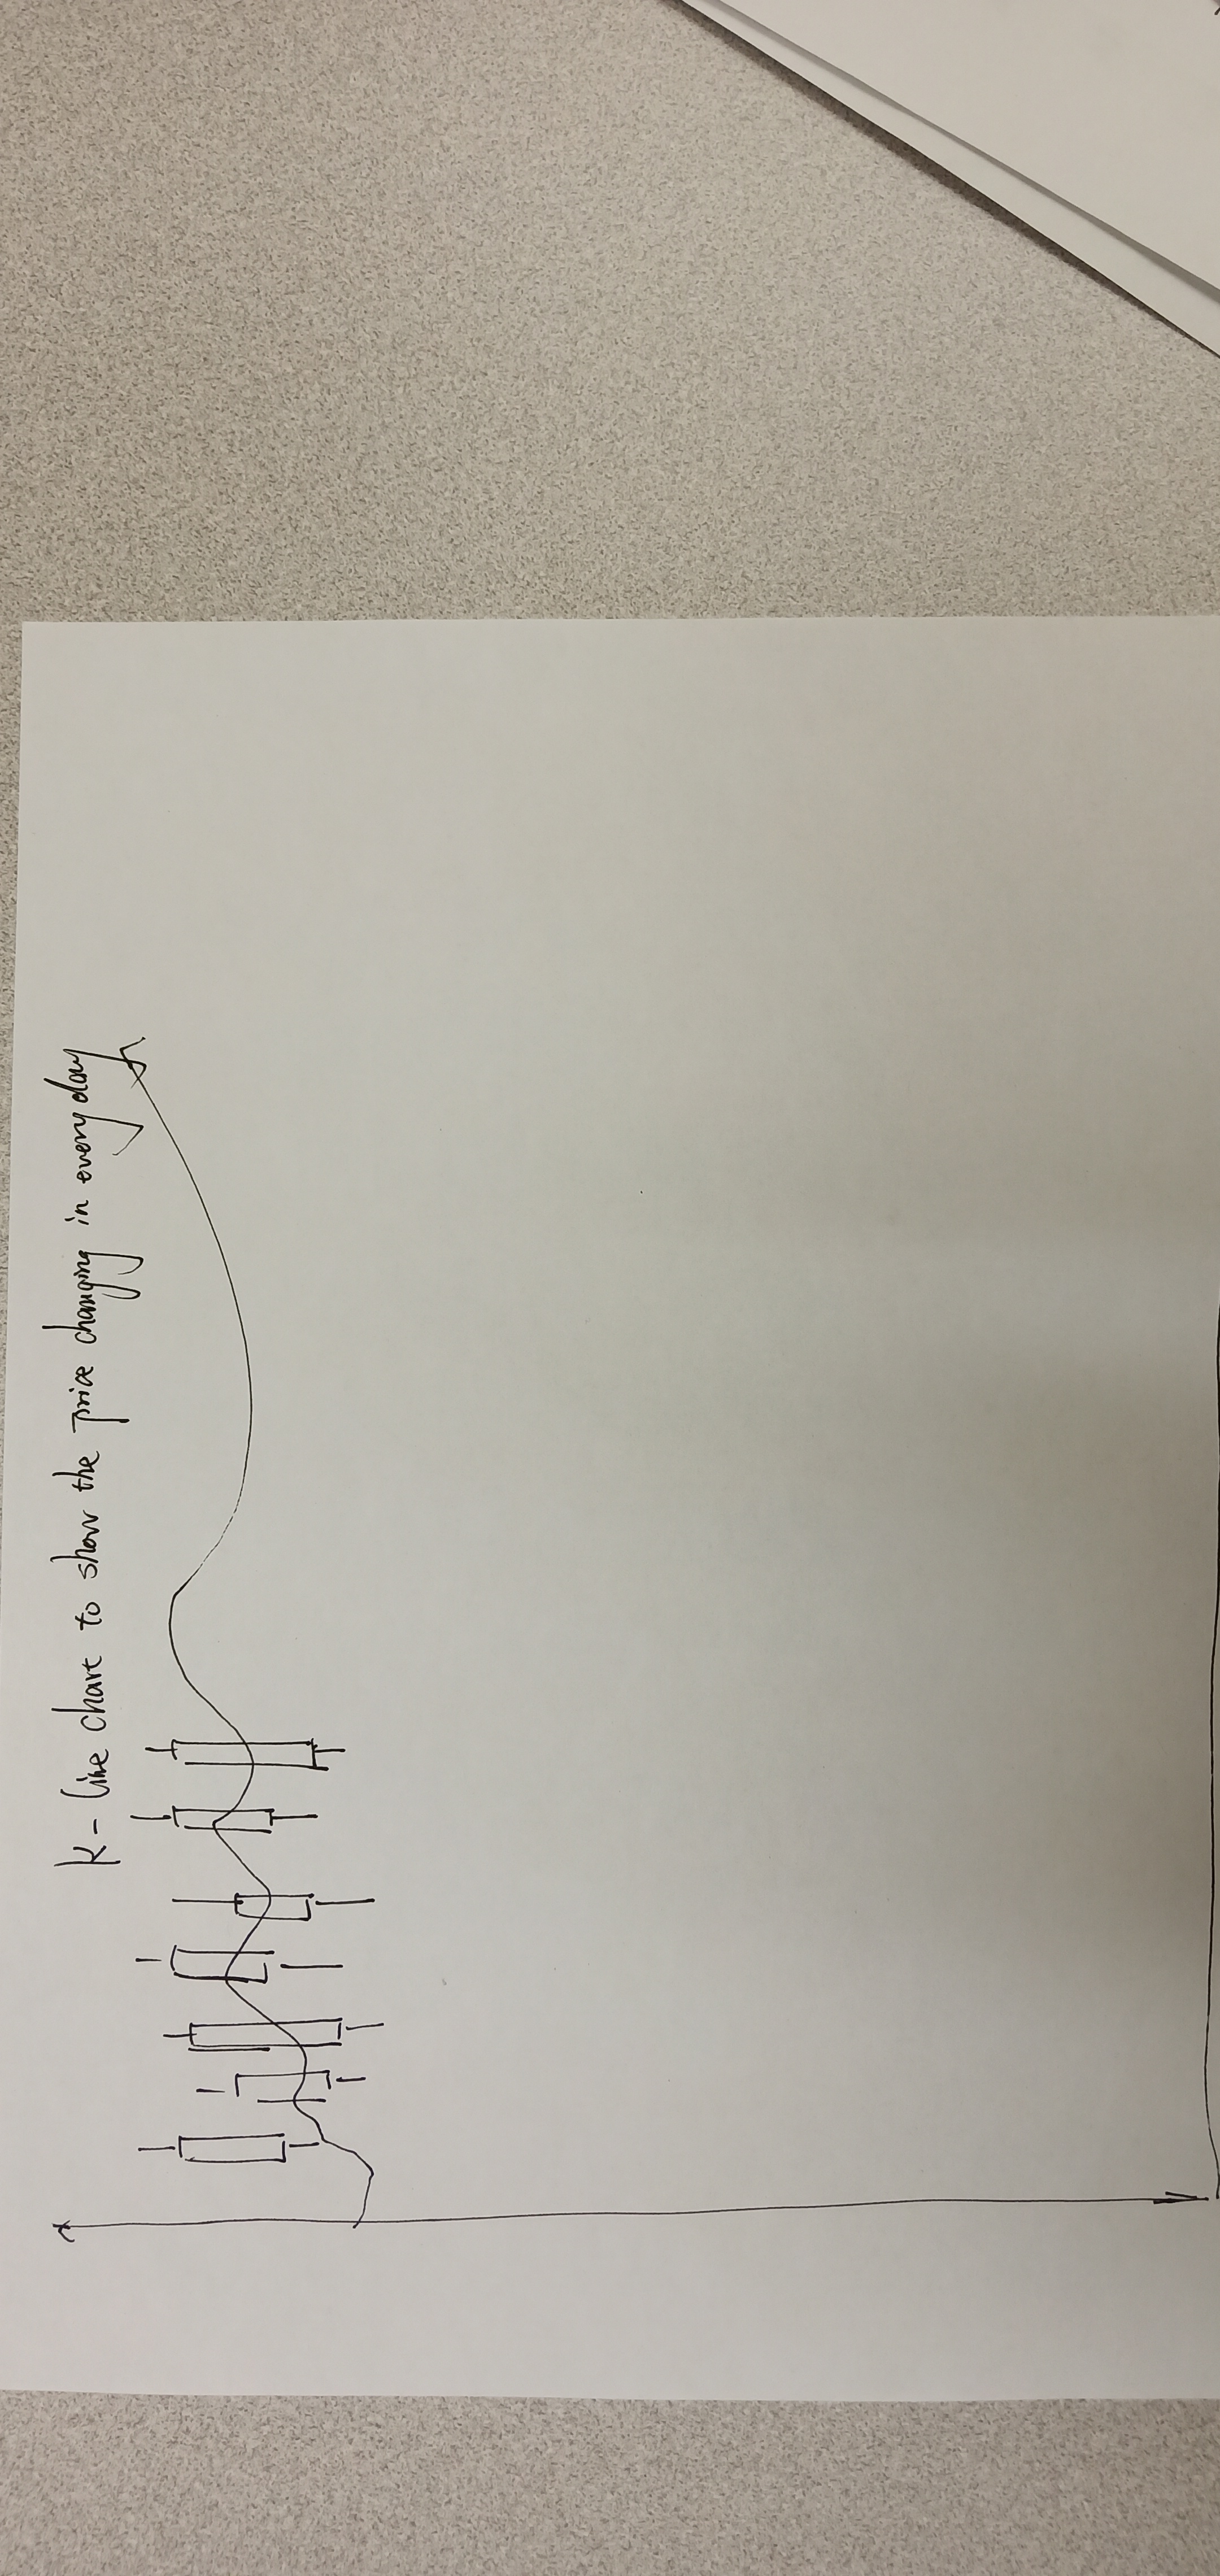 K-line chart to show the price changing in every day